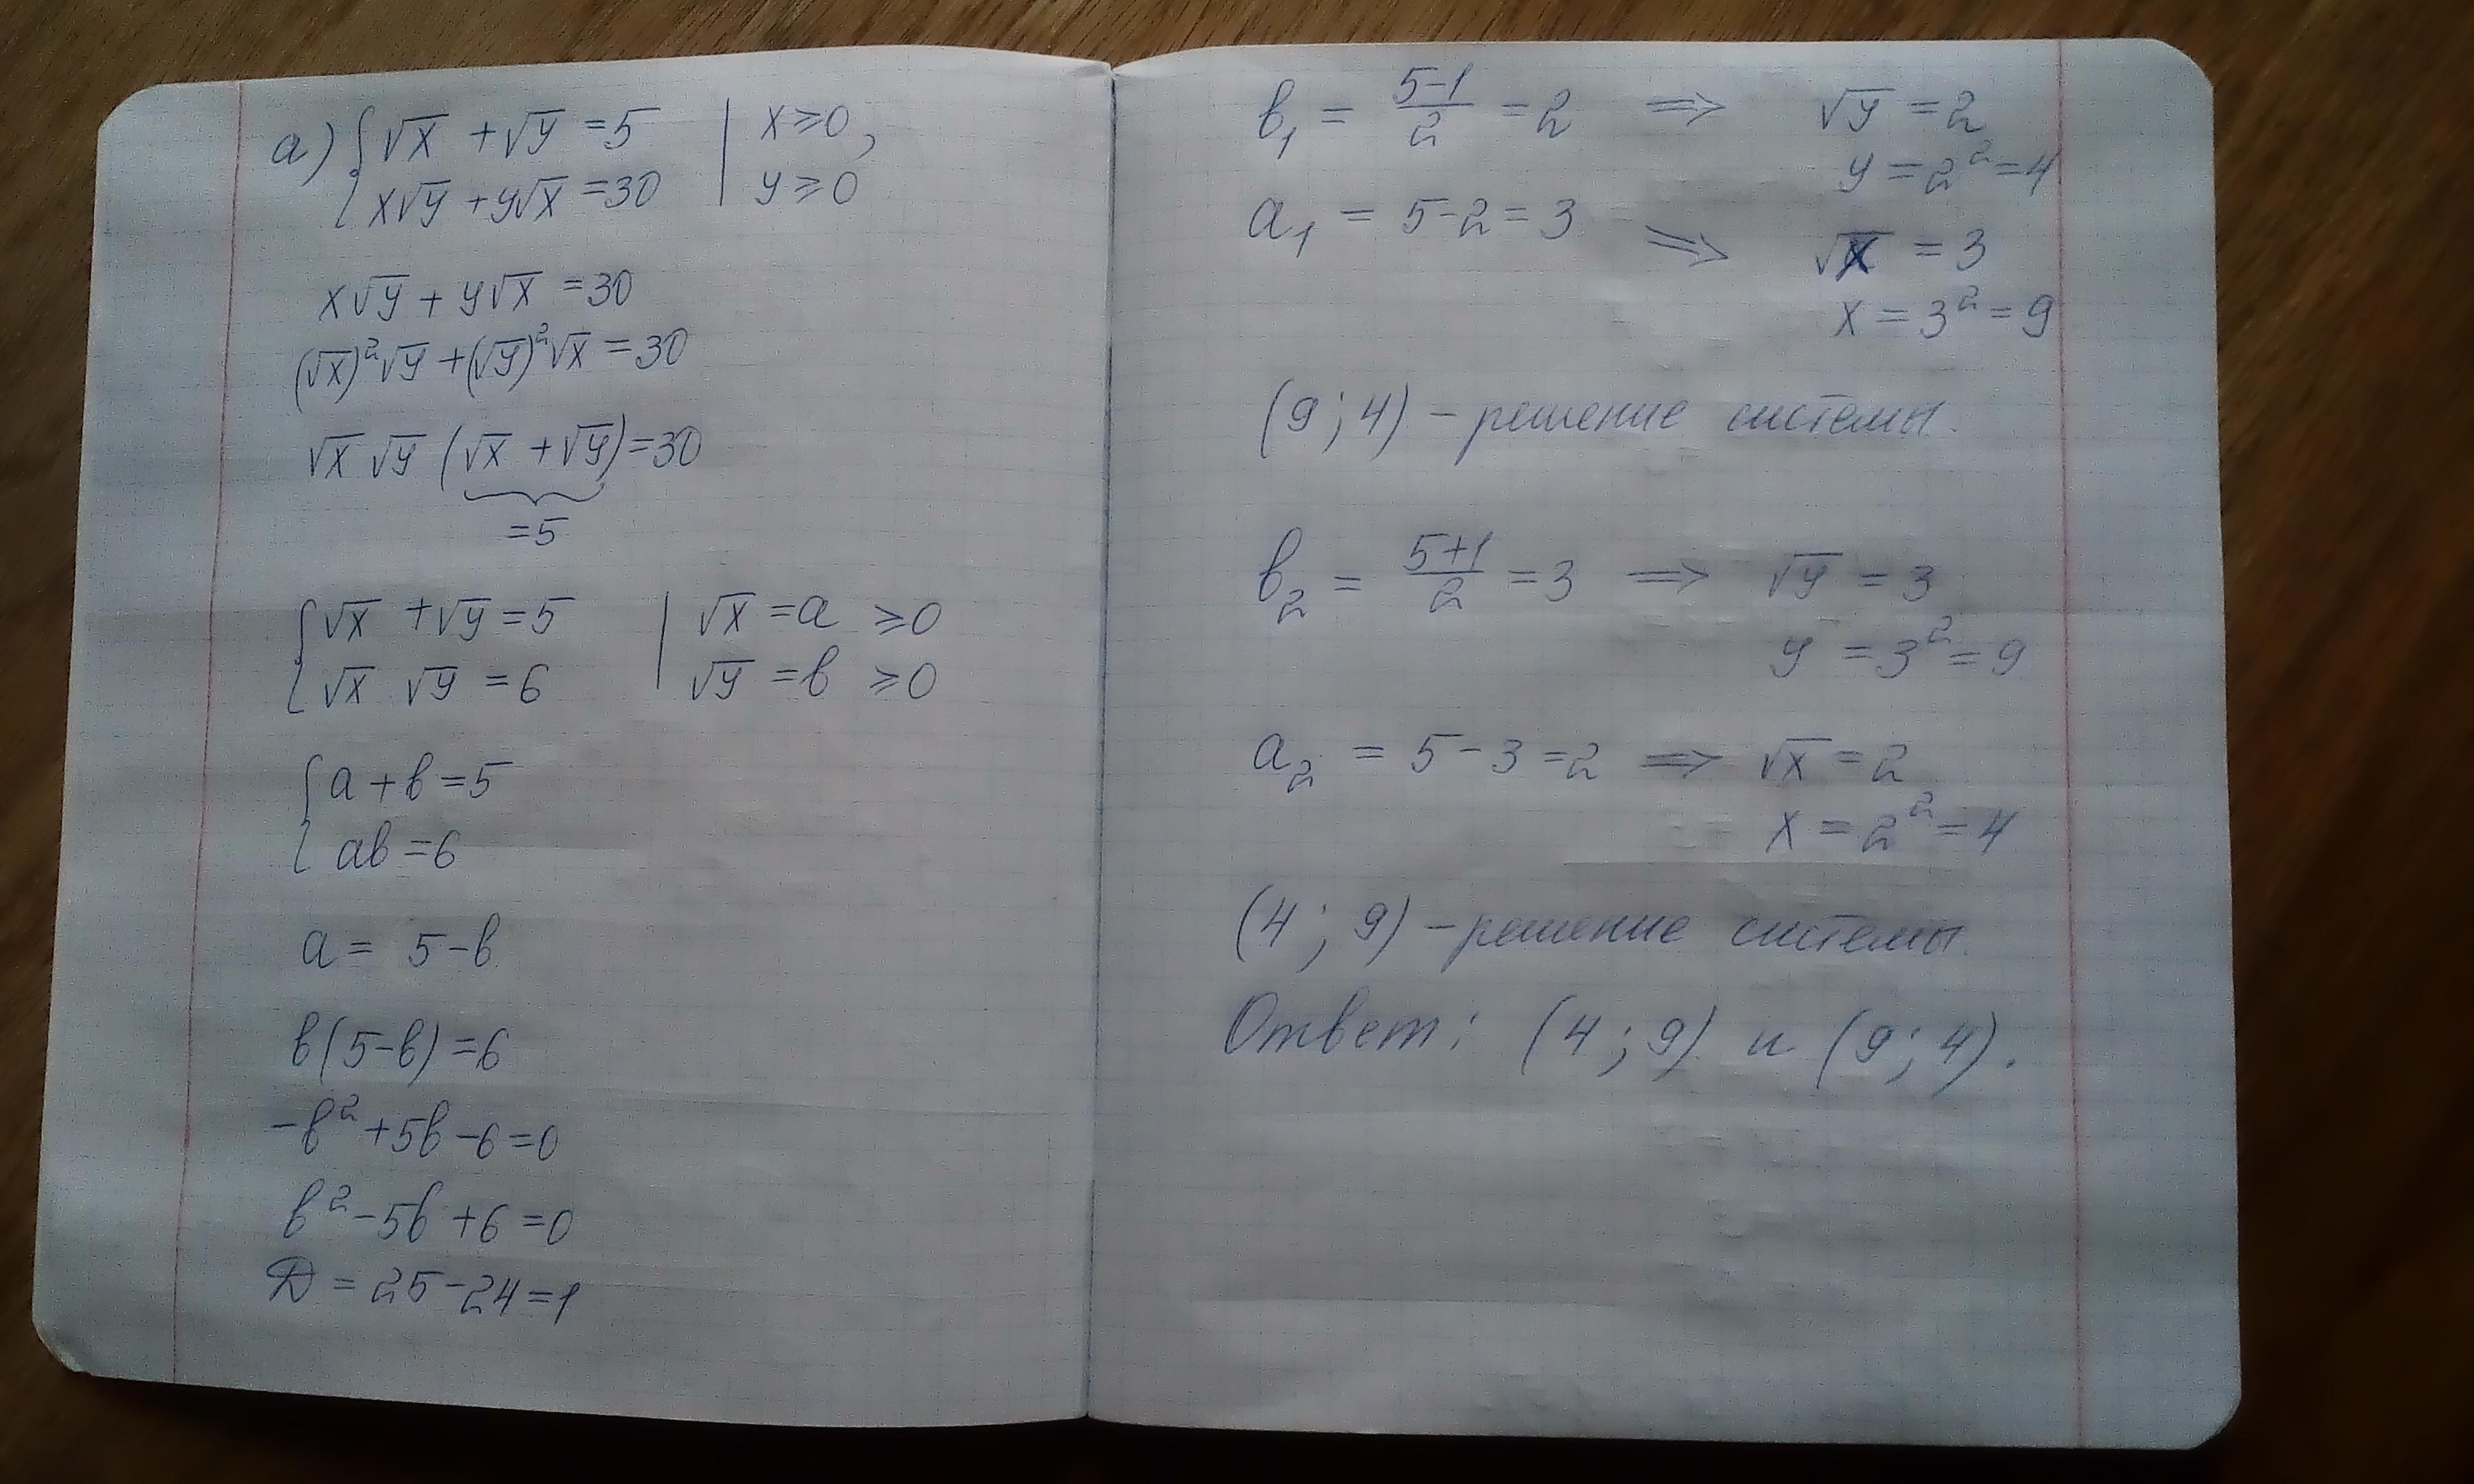 а) { √x + √y = 5 | x ≥ 0,
{ x√y + y√x = 30 | y ≥ 0
x√y + y√x = 30
(√x)²√y + (√y)²√x = 30
√x √y (√x + √y) = 30
= 5
{ √x + √y = 5 | √x = a ≥ 0
{ √x √y = 6 | √y = b ≥ 0
{ a + b = 5
{ ab = 6
a = 5 - b
b(5-b) = 6
-b² + 5b - 6 = 0
b² - 5b + 6 = 0
Д = 25 - 24 = 1
b₁ = (5-1)/2 = 2 ⇒ √y = 2
y = 2² = 4
a₁ = 5 - 2 = 3 ⇒ √x = 3
x = 3² = 9
(9; 4) - решение системы.
b₂ = (5+1)/2 = 3 ⇒ √y = 3
y = 3² = 9
a₂ = 5 - 3 = 2 ⇒ √x = 2
x = 2² = 4
(4; 9) - решение системы.
Ответ: (4; 9) и (9; 4).